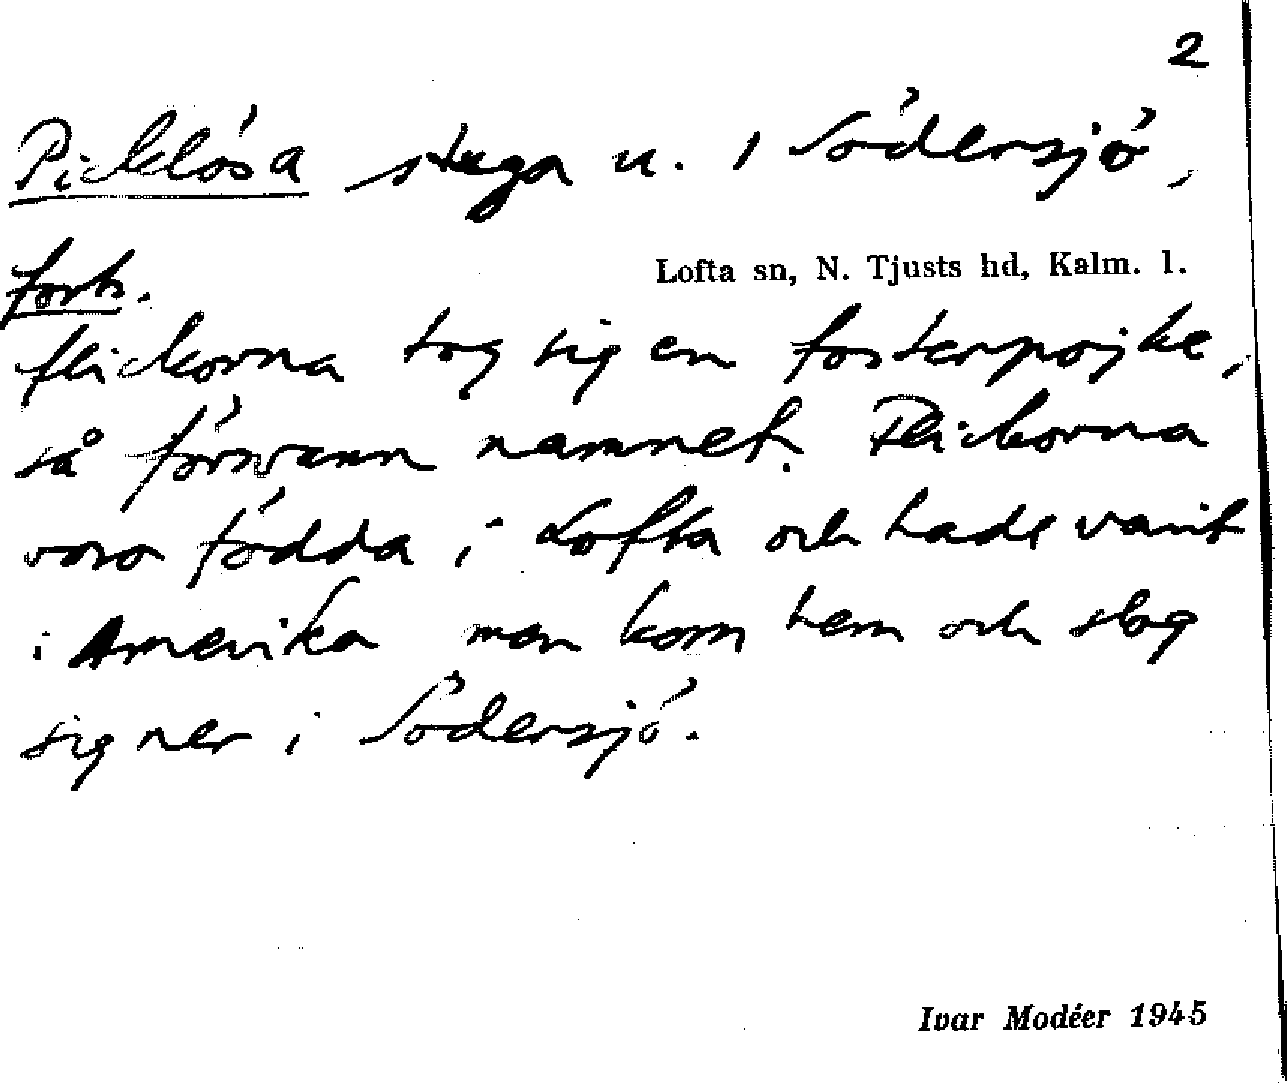 2
Picklösa stuga u. 1 Södersjö,
forts.
Lofta sn, N. Tjusts hd, Kalm. l.
flickorna tog sig en fosterpojke,
så försvann namnet. Flickorna
voro födda i Lofta och hade varit
i Amerika men kom hem och slog
sig ner i Södersjö.
Ivar Modéer 1945